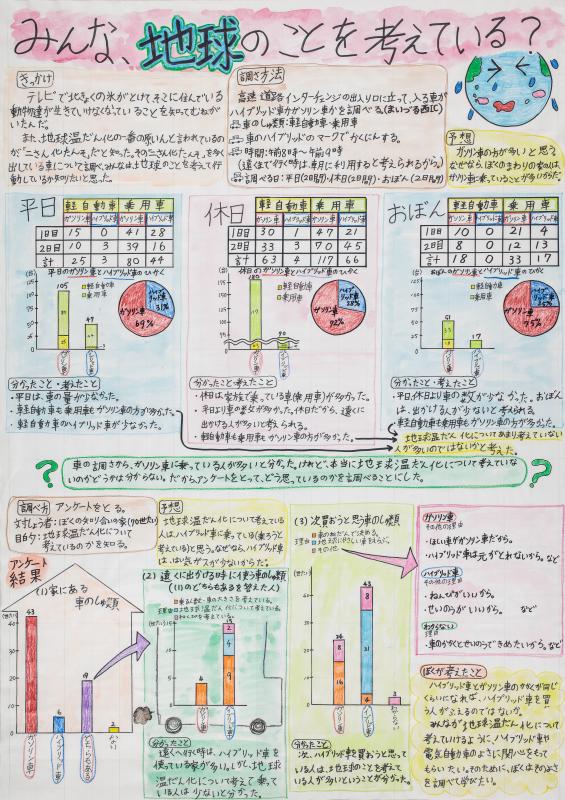 みんな、地球のことを考えている?
きっかけ
テレビで北きょくの氷がとけて、そこに住んでいる
動物達が生きていけなくなっていることを知ってむねが
いたんだ。
また、地球温だん化の一番の原いんと言われているの
が「二さん化たんそ」だと知った。
調さ方法
高速道路インターチェンジの出入り口に立って、入る車が
ハイブリッド車かガソリン車かを調べる。(まいづる西IC)
車のしゅ類:軽自動車・乗用車
車のハイブリッドのマークでかくにんする。
時間:午前8時~午前9時
(遠くまで行く時は、車を利用すると考えられるから。)
調べる日:平日(2日間)・休日(2日間)・おぼん(2日間)
予想
ガソリン車の方が多いと思う。
なぜなら、ぼくのまわりの家の人は、
ガソリン車に乗っていることが多いから。
平日
軽自動車 乗用車
ガソリン車 ハイブリッド車 ガソリン車 ハイブリッド車
1日目 15 0 41 28
2日目 10 3 39 16
計 25 3 80 44
平日のガソリン車とハイブリッド車のひかく
(台)
105
47
軽自動車
乗用車
ハイブリッド車 31%
ガソリン車 69%
休日
軽自動車 乗用車
ガソリン車 ハイブリッド車 ガソリン車 ハイブリッド車
1日目 30 1 47 21
2日目 33 3 70 45
計 63 4 117 66
休日のガソリン車とハイブリッド車のひかく
(台)
180
軽自動車
乗用車
ハイブリッド車 28%
ガソリン車 72%
おぼん
軽自動車 乗用車
ガソリン車 ハイブリッド車 ガソリン車 ハイブリッド車
1日目 10 0 21 4
2日目 8 0 12 13
計 18 0 33 17
おぼんのガソリン車とハイブリッド車のひかく
(台)
51
17
軽自動車
乗用車
ハイブリッド車 25%
ガソリン車 75%
分かったこと・考えたこと
・平日は、車の量が少なかった。
・軽自動車も乗用車もガソリン車の方が多かった。
・軽自動車のハイブリッド車が少なかった。
分かったこと・考えたこと
・休日は家族で乗っている車(乗用車)が多かった。
・平日より車の数が多かった。休日だから、遠くに
出かける人が多いと考えられる。
・軽自動車も乗用車もガソリン車の方が多かった。
分かったこと・考えたこと
・平日、休日より車の数が少なかった。おぼん
は、出かける人が少ないと考えられる。
・軽自動車も乗用車もガソリン車が多かった。
地球温だん化についてあまり考えていない
人が多いのではないかと考えた。
? 車の調さから、ガソリン車に乗っている人が多いと分かった。けれど、本当に地球温だん化について考えていな
いのかどうかは分からない。だから、アンケートをとって、どう思っているのかを調べることにした。 ?
調べ方 アンケートをとる。
対しょう者:ぼくの知り合いの家(70世たい)
目的:地球温だん化について
考えているのかを知る。
予想
地球温だん化について考えている
人はハイブリッド車に乗っている(乗ろう
と考えている)と思う。なぜなら、ハイブリッド車
は、はい気ガスが少ないからだ。
アンケート
結果
(1)家にある
車のしゅ類
(世たい)
43
6
19
2
ガソリン車
ハイブリッド車
どちらもある
(2)遠くに出かける時に使う車のしゅ類
((1)のどちらもあるを答えた人)
(世たい)
4
15
2
4
9
分かったこと
遠くへ行く時は、ハイブリッド車を
使っている家が多い。しかし、地球
温だん化について考えて乗って
いる人は少ないと分かった。
(3)次買おうと思う車のしゅ類
理由
車のねだんで決める。
その他
(世たい)
24
8
16
43
8
31
4
3
分かったこと
次、ハイブリッド車を買おうと思って
いる人は、地球のことを考えて
いる人が多いということが分かった。
ガソリン車
その他の理由
・ほしい車がガソリン車だから。
・ハイブリッド車は元がとれないから。など
ハイブリッド車
その他の理由
・ねんぴがいいから。
・せいのうがいいから。 など
わからない
理由
・車のかかくとせいのうできめたいから。など
ぼくが考えたこと
ハイブリッド車とガソリン車のかかくが同じ
くらいになれば、ハイブリッド車を買
う人がふえるのではないか。
みんなが地球温だん化について
考えていけるように、ハイブリッド車や
電気自動車のよさに関心をもって
もらいたい。そのために、ぼくはそのよさ
を調べて学びたい。